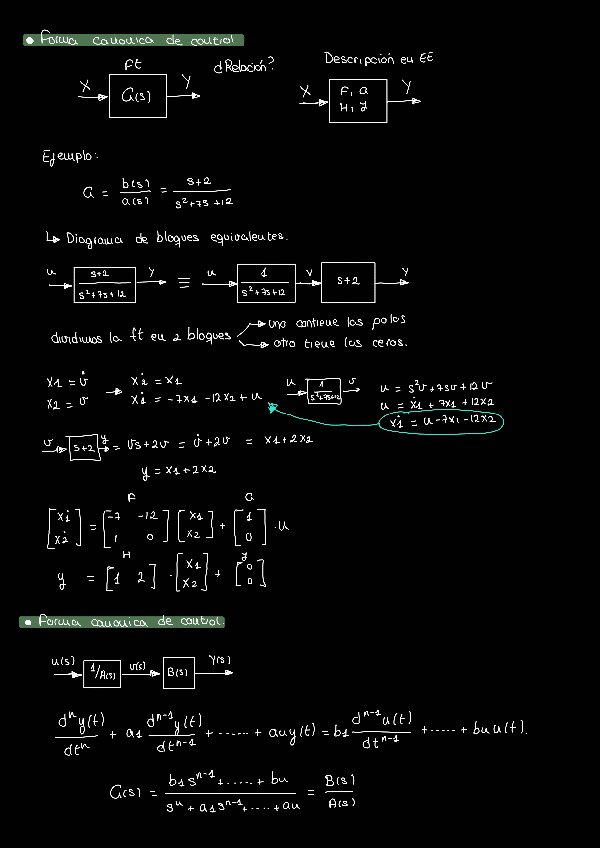 • Forma canonica de control
Ft ¿Relación? Descripción en EE
X G(s) Y X F, G H, J Y
Ejemplo:
G = b(s)/a(s) = s+2/s²+7s+12
↳ Diagrama de bloques equivalentes.
u s+2/s²+7s+12 y ≡ u 1/s²+7s+12 v s+2 y
dividimos la ft en 2 bloques → uno contiene los polos
→ otro tiene los ceros.
x1 = v̇ → ẋ2 = x1 u 1/s²+7s+12 v u = s²v+7sv+12v
x2 = v ẋ1 = -7x1 -12x2 + u u = ẋ1 + 7x1 + 12x2
ẋ1 = u-7x1-12x2
v s+2 y = vs+2v = v̇+2v = x1+2x2
y = x1+2x2
F G
[ẋ1 ẋ2] = [-7 -12 1 0] [x1 x2] + [1 0] · u
H J
y = [1 2] · [x1 x2] + [0 0]
• Forma canonica de control.
u(s) 1/A(s) v(s) B(s) Y(s)
dⁿy(t)/dtⁿ + a1 dⁿ⁻¹y(t)/dtⁿ⁻¹ + ...... + an y(t) = b1 dⁿ⁻¹u(t)/dtⁿ⁻¹ + ..... + bn u(t).
G(s) = b1 sⁿ⁻¹ + ..... + bn/sⁿ + a1 sⁿ⁻¹ + ..... + an = B(s)/A(s)